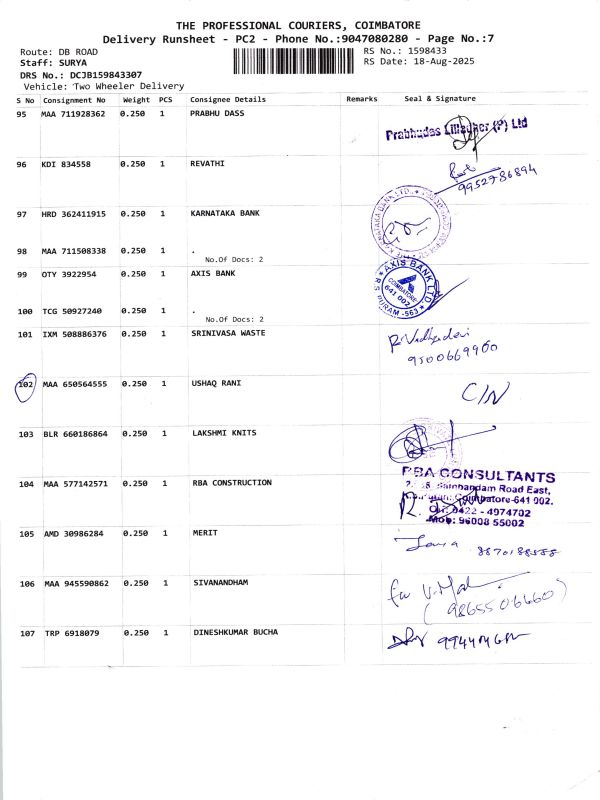 THE PROFESSIONAL COURIERS, COIMBATORE
Delivery Runsheet - PC2 - Phone No.:9047080280 - Page No.:7
Route: DB ROAD
RS No.: 1598433
Staff: SURYA
RS Date: 18-Aug-2025
DRS No.: DCJB159843307
Vehicle: Two Wheeler Delivery
S No Consignment No Weight PCS Consignee Details Remarks Seal & Signature
95 MAA 711928362 0.250 1 PRABHU DASS
Prabhudas Lilladher (P) Ltd
96 KDI 834558 0.250 1 REVATHI
9952786894
97 HRD 362411915 0.250 1 KARNATAKA BANK
98 MAA 711508338 0.250 1 .
No.Of Docs: 2
99 OTY 3922954 0.250 1 AXIS BANK
AXIS BANK LTD
COIMBATORE
641 002
R.S. PURAM -563
100 TCG 50927240 0.250 1 .
No.Of Docs: 2
101 IXM 508886376 0.250 1 SRINIVASA WASTE
9500669900
102 MAA 650564555 0.250 1 USHAQ RANI
C/N
103 BLR 660186864 0.250 1 LAKSHMI KNITS
104 MAA 577142571 0.250 1 RBA CONSTRUCTION
RBA CONSULTANTS
Sambandam Road East,
Coimbatore-641 002.
Off: 0422 - 4974702
Mob: 96008 55002
105 AMD 30986284 0.250 1 MERIT
8870188588
106 MAA 945590862 0.250 1 SIVANANDHAM
(9865506660)
107 TRP 6918079 0.250 1 DINESHKUMAR BUCHA